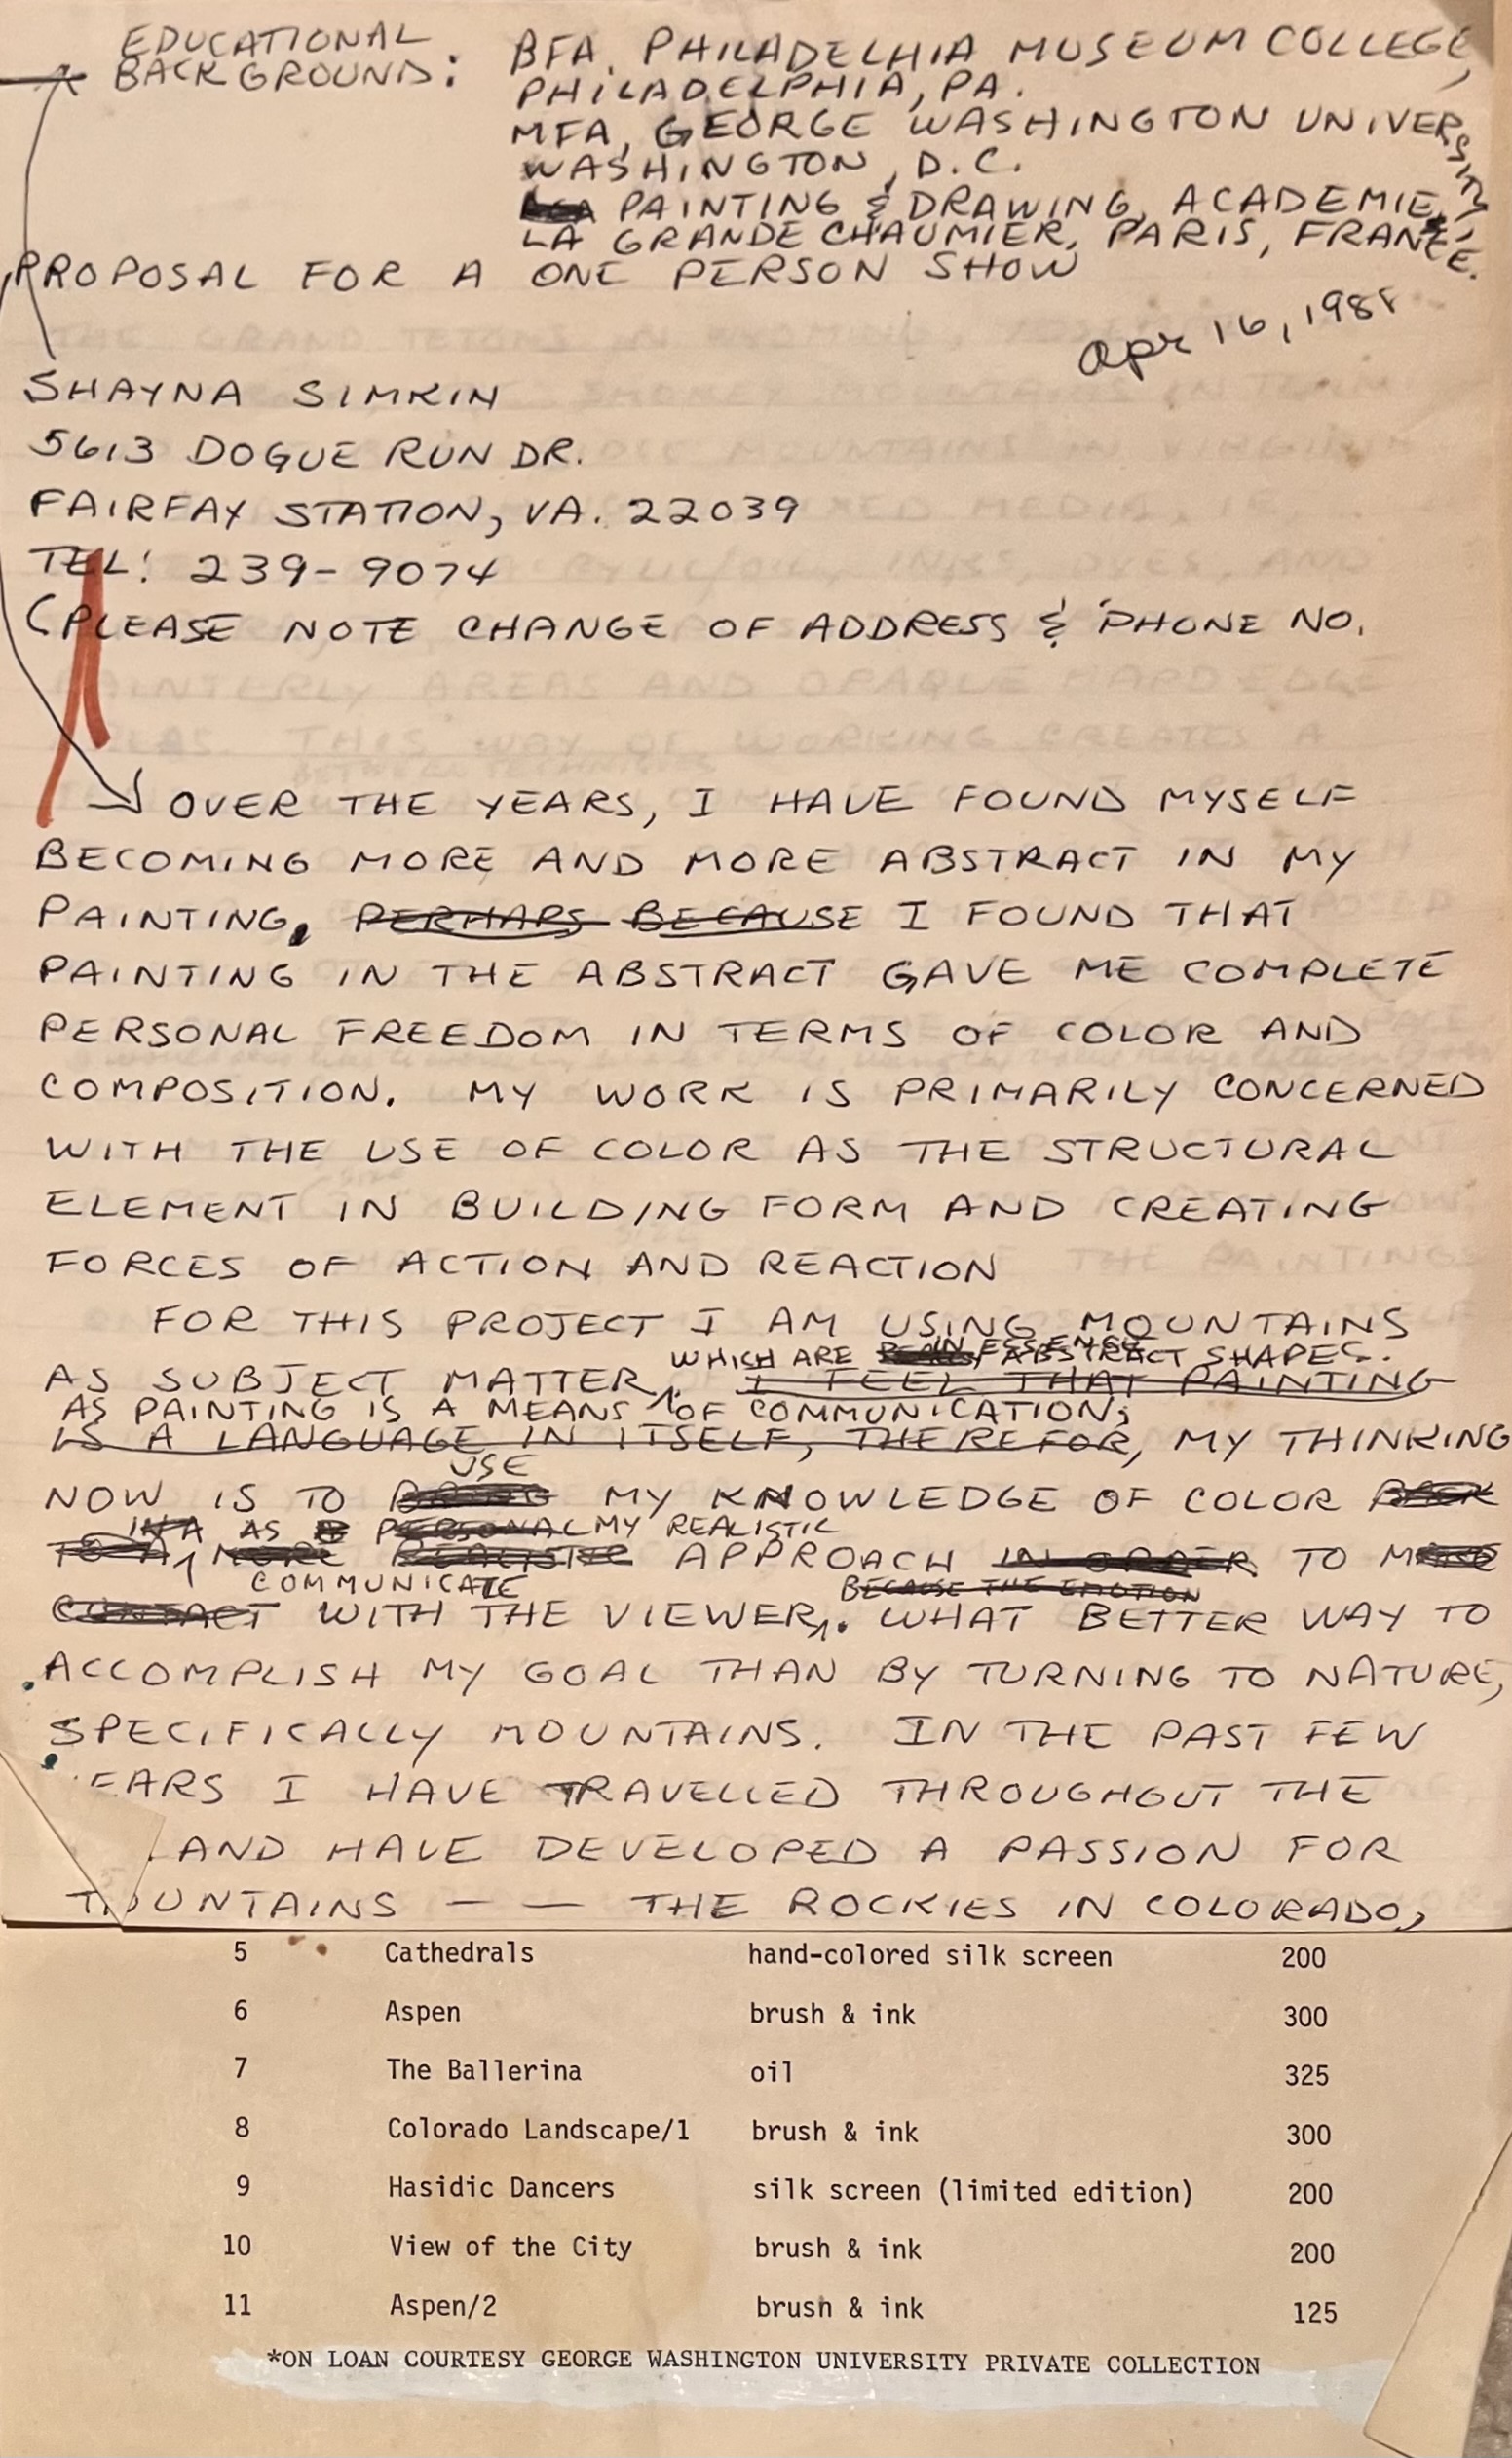 EDUCATIONAL
BACKGROUND:
BFA. PHILADELHIA MUSEUM COLLEGE,
PHILADELPHIA, PA.
MFA, GEORGE WASHINGTON UNIVERSITY,
WASHINGTON, D.C.
PAINTING & DRAWING, ACADEMIE
LA GRANDE CHAUMIER, PARIS, FRANCE.
PROPOSAL FOR A ONE PERSON SHOW
Apr 16, 198
SHAYNA SIMKIN
5613 DOGUE RUN DR.
FAIRFAX STATION, VA. 22039
TEL: 239-9074
(PLEASE NOTE CHANGE OF ADDRESS & PHONE NO.
OVER THE YEARS, I HAVE FOUND MYSELF
BECOMING MORE AND MORE ABSTRACT IN MY
PAINTING. PERHAPS BECAUSE I FOUND THAT
PAINTING IN THE ABSTRACT GAVE ME COMPLETE
PERSONAL FREEDOM IN TERMS OF COLOR AND
COMPOSITION. MY WORK IS PRIMARILY CONCERNED
WITH THE USE OF COLOR AS THE STRUCTURAL
ELEMENT IN BUILDING FORM AND CREATING
FORCES OF ACTION AND REACTION
FOR THIS PROJECT I AM USING MOUNTAINS
IN ESSENCE
WHICH ARE ABSTRACT SHAPES.
AS SUBJECT MATTER. I FEEL THAT PAINTING
AS PAINTING IS A MEANS OF COMMUNICATION;
IS A LANGUAGE IN ITSELF, THEREFOR, MY THINKING
USE
NOW IS TO BRING MY KNOWLEDGE OF COLOR BACK
IN A AS PERSONAL MY REALISTIC
TO A MORE REALISTIC APPROACH IN ORDER TO MAKE
COMMUNICATE BECAUSE THE EMOTION
CONTACT WITH THE VIEWER. WHAT BETTER WAY TO
ACCOMPLISH MY GOAL THAN BY TURNING TO NATURE,
SPECIFICALLY MOUNTAINS. IN THE PAST FEW
EARS I HAVE TRAVELLED THROUGHOUT THE
AND HAVE DEVELOPED A PASSION FOR
MOUNTAINS -- THE ROCKIES IN COLORADO,
5 Cathedrals hand-colored silk screen 200
6 Aspen brush & ink 300
7 The Ballerina oil 325
8 Colorado Landscape/1 brush & ink 300
9 Hasidic Dancers silk screen (limited edition) 200
10 View of the City brush & ink 200
11 Aspen/2 brush & ink 125
*ON LOAN COURTESY GEORGE WASHINGTON UNIVERSITY PRIVATE COLLECTION